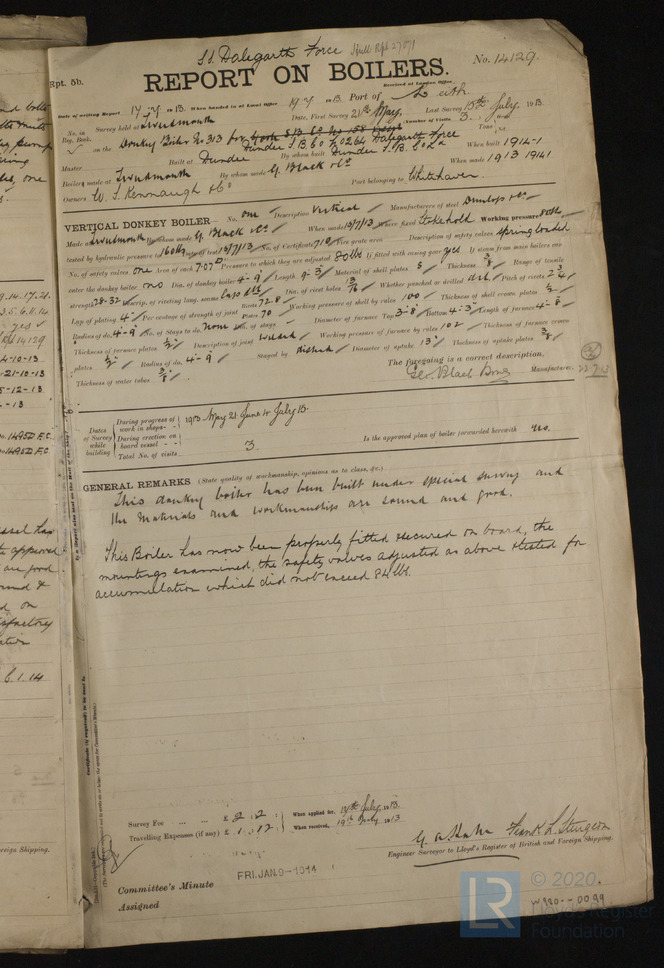 Rpt. 5b.
S.S. Dalegarth Force Hull Rpt 27871
REPORT ON BOILERS.
No. 14129.
Received at London Office
Date of writing Report 17.7.1913. When handed in at Local Office 19.7.1913 Port of Leith
No. in Reg. Book. Survey held at Tweedmouth Date, First Survey 21st May, Last Survey 15th July, 1913.
Number of Visits 3
on the Donkey Boiler No 313 for Dundee S.B. Co No 264 Dalegarth Force Tons
Master Built at Dundee By whom built Dundee S.B. Co Ld When built 1914-1
Boilers made at Tweedmouth By whom made G. Black & Co When made 1913
Owners W. S. Kennaugh & Co Port belonging to Whitehaven
VERTICAL DONKEY BOILER No. one Description Vertical Manufacturers of steel Dunlop & Co.
Made at Tweedmouth By whom made G. Black & Co When made 15/7/13 Where fixed Stokehold Working pressure 80 lbs
tested by hydraulic pressure to 160 lbs Date of test 15/7/13 No. of Certificate Fire grate area Description of safety valves Spring loaded
No. of safety valves one Area of each 7.07 Pressure to which they are adjusted 80 lbs If fitted with easing gear yes If steam from main boilers can
enter the donkey boiler no Dia. of donkey boiler 4-9 Length 9-3 Material of shell plates S Thickness 3/8 Range of tensile
strength 28-32 Descrip. of riveting long. seams Lap Dia. of rivet holes 13/16 Whether punched or drilled drd Pitch of rivets 2 3/4
Lap of plating 4 Per centage of strength of joint Rivets 72.8 Plates 70 Working pressure of shell by rules 100 Thickness of shell crown plates 1/2
Radius of do. 4-9 No. of Stays to do. None Dia. of stays Diameter of furnace Top 3-8 Bottom 4-3 Length of furnace 4-8
Thickness of furnace plates 1/2 Description of joint Welded Working pressure of furnace by rules 102 Thickness of furnace crown
plates 1/2 Radius of do. 4-9 Stayed by dished Diameter of uptake 13 Thickness of uptake plates 3/8
Thickness of water tubes 3/8
The foregoing is a correct description,
Geo. Black & Co Manufacturer.
Dates of Survey while building
During progress of work in shops 1913 May 21 June 4 July 15.
During erection on board vessel
Total No. of visits 3.
Is the approved plan of boiler forwarded herewith No.
GENERAL REMARKS (State quality of workmanship, opinions as to class, &c.)
This donkey boiler has been built under special survey and
the materials and workmanship are sound and good.
This Boiler has now been properly fitted & secured on board, the
mountings examined, the safety valves adjusted as above & tested for
accumulation which did not exceed 84 lbs.
Survey Fee £ 2.2 When applied for, 18th July, 1913.
Travelling Expenses (if any) £ When received, 19th July 1913
Frank L. Sturgeon
Engineer Surveyor to Lloyd's Register of British and Foreign Shipping.
Committee's Minute FRI. JAN. 9-1914
Assigned
© 2020.
Lloyd's Register
Foundation
LR
W920-0099